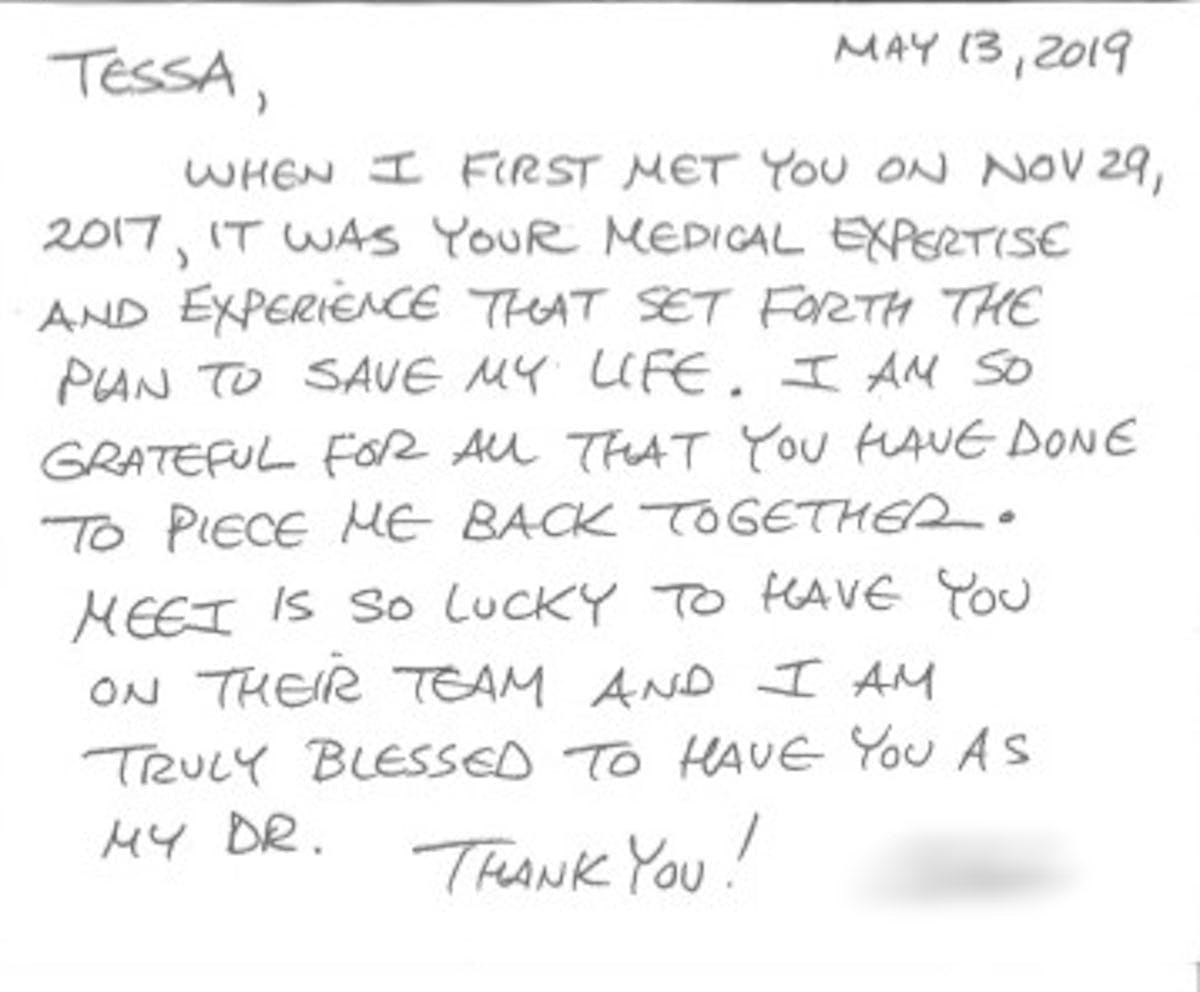 MAY 13, 2019
TESSA,
WHEN I FIRST MET YOU ON NOV 29,
2017, IT WAS YOUR MEDICAL EXPERTISE
AND EXPERIENCE THAT SET FORTH THE
PLAN TO SAVE MY LIFE. I AM SO
GRATEFUL FOR ALL THAT YOU HAVE DONE
TO PIECE ME BACK TOGETHER.
MEEI IS SO LUCKY TO HAVE YOU
ON THEIR TEAM AND I AM
TRULY BLESSED TO HAVE YOU AS
MY DR. THANK YOU!